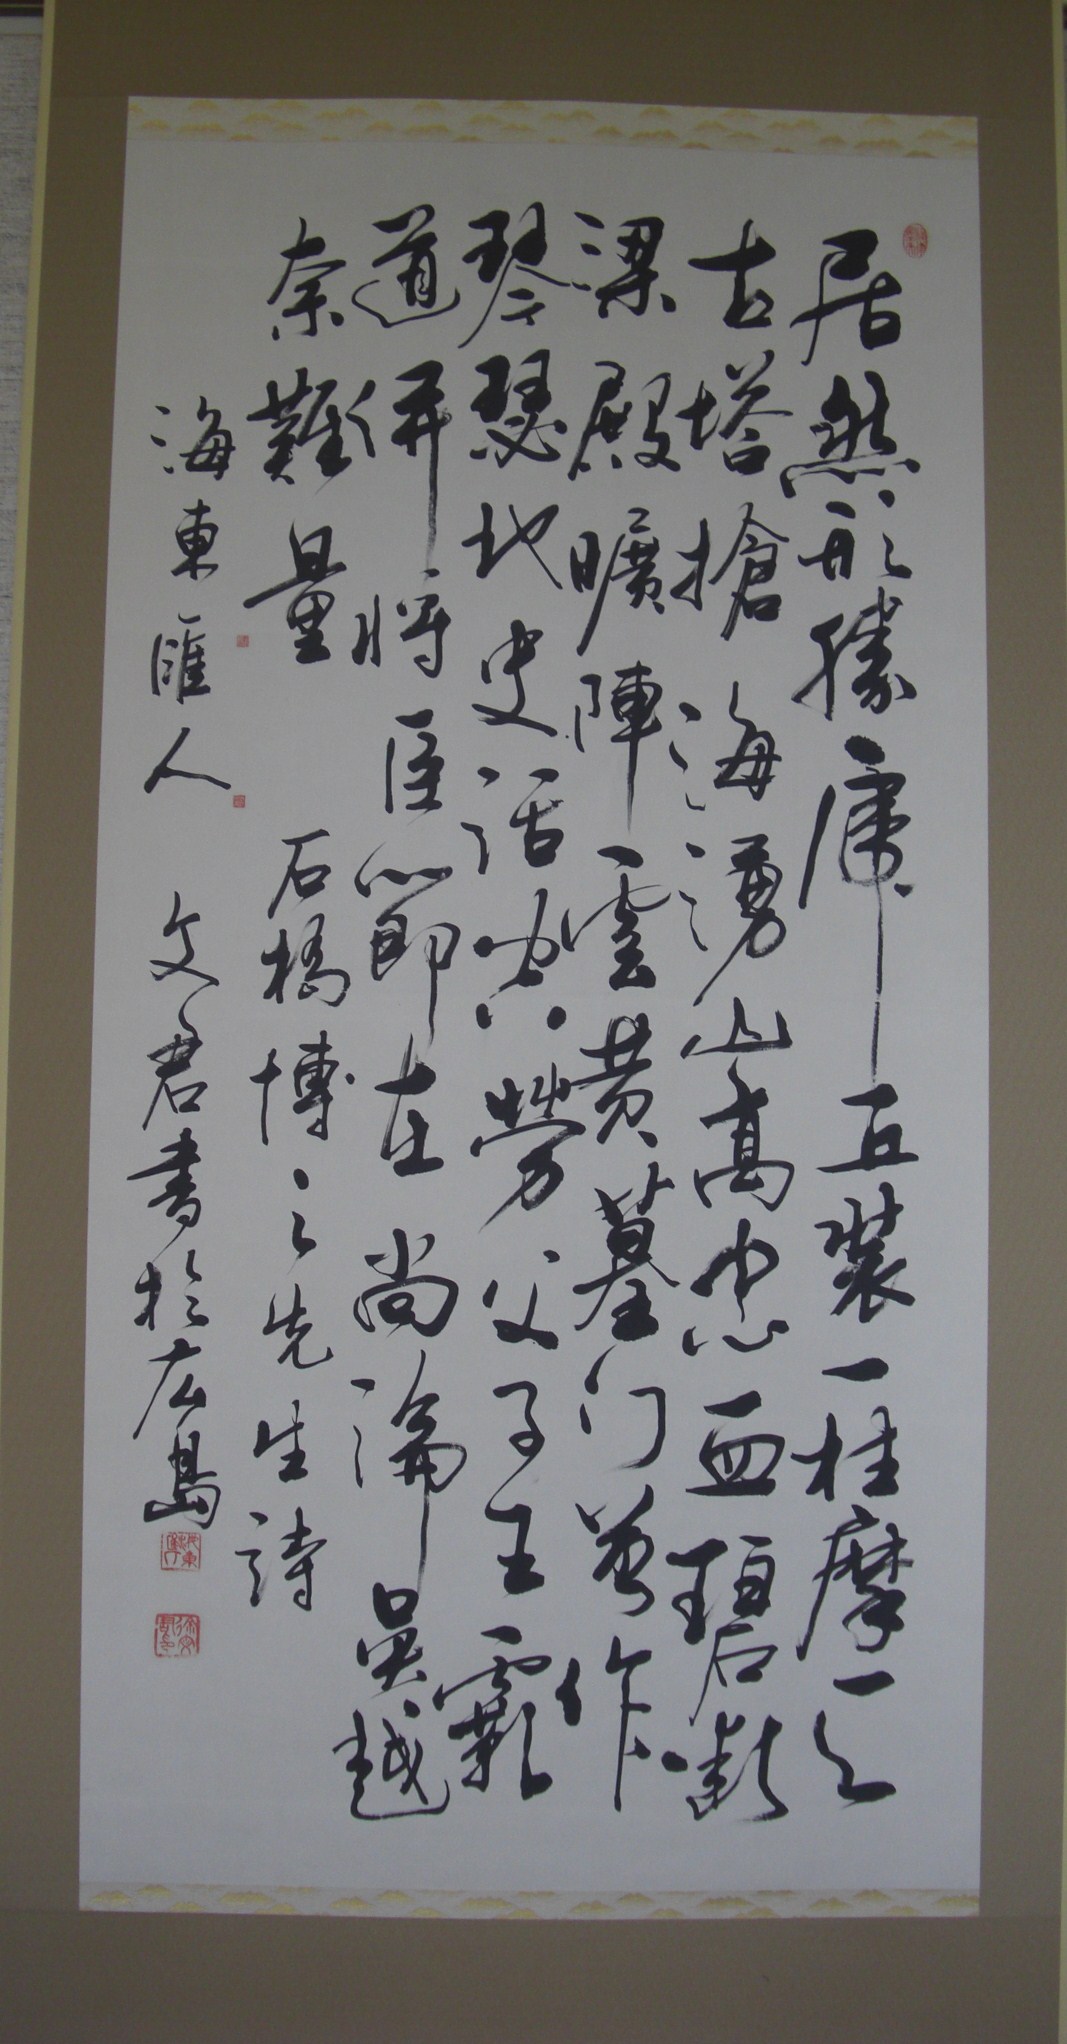 居然形勝虎丘装一柱摩天
古塔搶海湧山高忠血碧斷
梁殿曠陣雲黄墓門曾作
琴瑟地史話空勞父子王霸
道併将臣節在尚論吳越
奈難量 石橋博之先生詩
海東匯人 文君書於広島